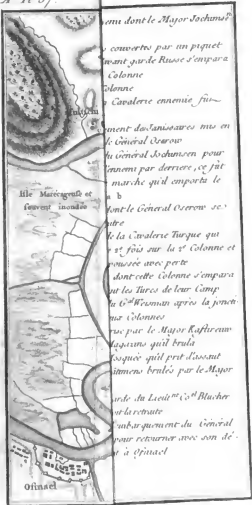 enu dont le Major Jochums
s couvertes par un piquet
want garde Russe s'empara
Colonne
olonne
a Cavalerie ennemie fut
ment de Janissaires mis en
le Général Oserow
du Général Jochumsen pour
ennemi par derriere, ce fut
marche qu'il emporta le
a b
dont le Général Oserow se
utre
de la Cavalerie Turque qui
r 2e fois sur la 2e Colonne et
poussée avec perte
dont cette Colonne s'empara
nt les Turcs de leur Camp
du Gal Weisman après la joncti
ux Colonnes
rue par le Major Kaftireuw
Magazins qu'il brula
osquée qu'il prit d'assaut
âtimens brulés par le Major
arde du Lieutnt Coel Blücher
la retraite
embarquement du Général
pour retourner avec son dé
t à Ofinael
Isle Marécageuse et
souvent inondée
Ofinael